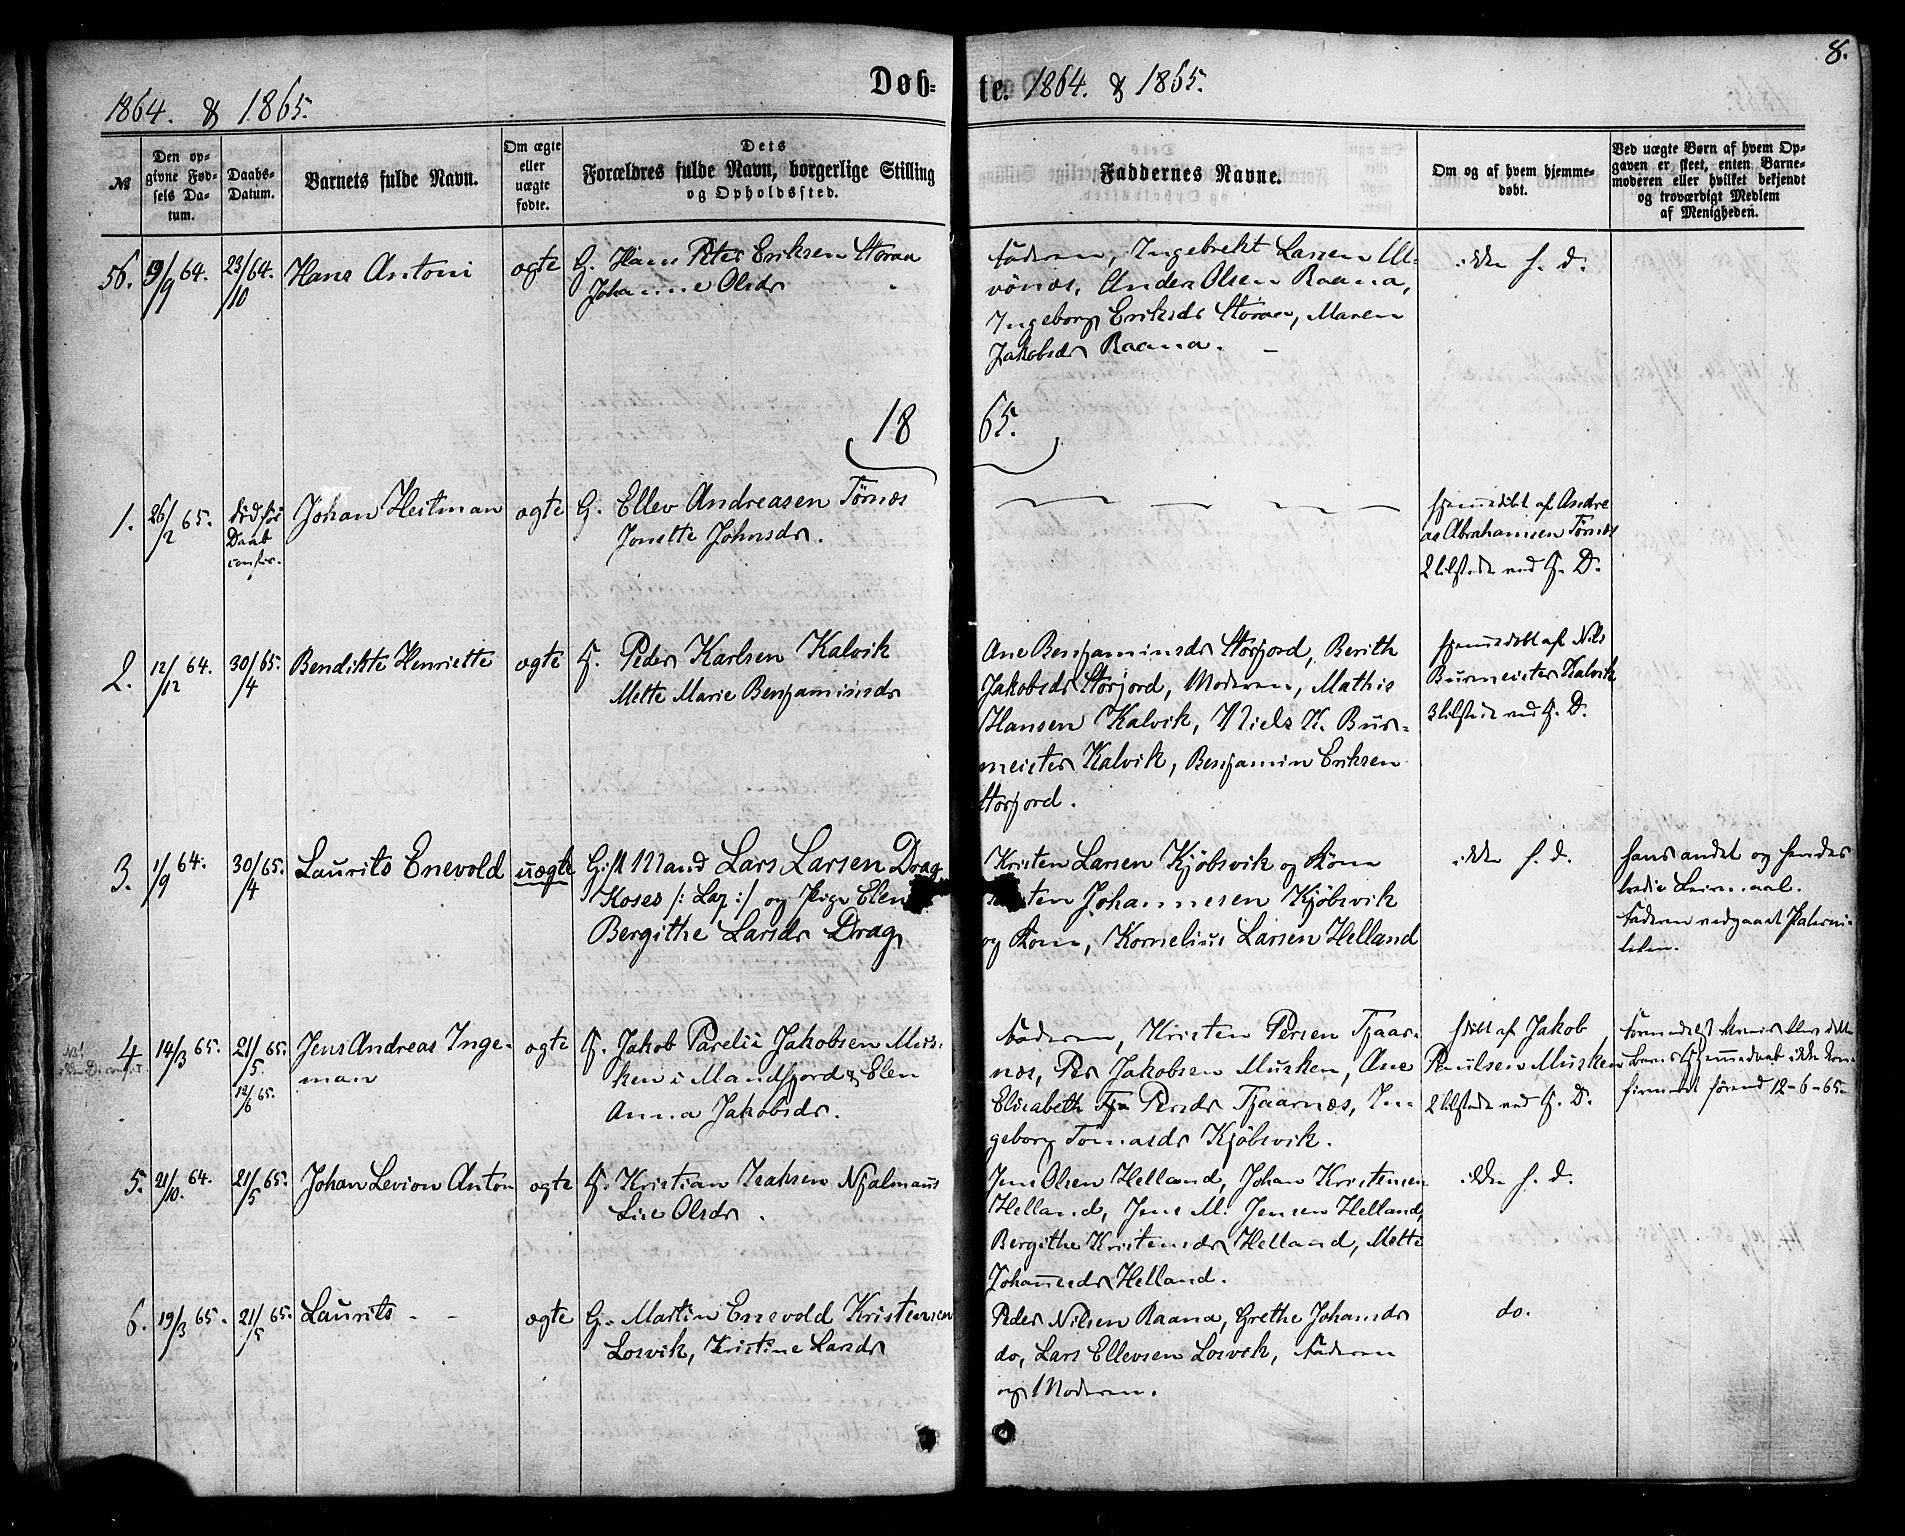 8.
Døb-
te. 1864. & 1865.
1864. & 1865.
№
Den op-
givne Fød-
sels Da-
tum.
Daabs-
Datum.
Barnets fulde Navn.
Om ægte
eller
uægte
fødte.
Dets
Forældres fulde Navn, borgerlige Stilling
og Opholdssted.
Faddernes Navne.
Om og af hvem hjemme-
døbt.
Ved uægte Børn af hvem Op-
gaven er skeet, enten Barne-
moderen eller hvilket bekjendt
og troværdigt Medlem
af Menigheden.
56. 9/9 64. 23/10 64. Hans Antoni ægte G. Hans Peter Eriksen Storaa
Johanne Olsdr
Faderen, Ingebrekt Larsen Ul-
vønæs, Anders Olsen Raana,
Ingeborg Eriksdr Storaa, Maren
Jakobsdr Raana. –
ikke h. d.
18 65.
1. 26/2 65. død før
Daab
confir.
Johan Heitman ægte G. Ellev Andreasen Tørnæs
Jonette Johnsdr.
hjemmedøbt af Andre
as Abrahamsen Tørnæs
2 tilstede ved H. D.
2. 12/12 64. 30/4 65. Bendikte Henriette ægte G. Peder Karlsen Kalvik
Mette Marie Benjaminsdr
Ane Benjaminsdr Storjord, Berith
Jakobsdr Storjord, Moderen, Mathis
Hansen Kalvik, Niels K. Bur-
meister Kalvik, Benjamin Eriksen
Storjord.
hjemmedøbt af Nils
Burmeister Kalvik
3 tilstede ved H. D.
3. 1/9 64. 30/4 65. Laurits Enevold uægte Gift Mand Lars Larsen Drag
Koses /: Lap :/ og Pige Elen
Bergithe Larsdr Drag
Kristen Larsen Kjøbsvik og Kone
Johannesen Kjøbsvik
og Kone, Kornelius Larsen Helland
ikke h. d.
hans andet og hendes
tredie Leiermaal.
Faderen vedgaaet Paterni-
teten.
4. 14/3 65. 21/5 65.
12/6 65.
Jens Andreas Inge-
man
ægte G. Jakob Parelii Jakobsen Mus-
ken i Mandfjord & Elen
Anna Jakobsdr.
Faderen, Kristen Persen Tjaar-
næs, Per Jakobsen Musken, Ane
Elisabeth Persdr Tjaarnæs, In-
geborg Tomasdr Kjøbsvik.
hdøbt af Jakob
Poulsen Musken
2 tilstede ved H. D.
blev dette
Barns Hjemmedaab ikke kon-
firmeret førend 12-6-65.
5. 21/10. 64. 21/5 65. Johan Levion Anton ægte G. Kristian Isaksen Njalmaus
Lise Olsdr.
Jens Olsen Helland, Johan Kristensen
Helland, Jens M. Jensen Helland,
Bergithe Kristensdr Helland, Mette
Johannesdr Helland.
ikke h. d.
6. 19/3 65. 21/5 65. Laurits - - ægte G. Martin Enevold Kristensen
Losvik, Kristine Larsdr
Peder Nilsen Raana, Grethe Johansdr
do, Lars Ellevsen Losvik, Faderen
og Moderen.
do.